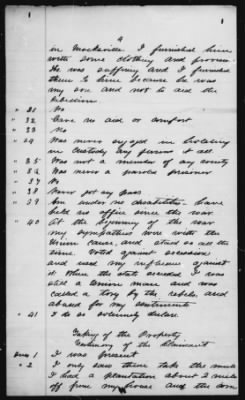 4
1
in Mocksville I furnished him
with some clothing and provisi-
He was suffering and I furnished
them to him because he was
my son and not to aid the
rebellion
" 31 No
" 32 Gave no aid or comfort
" 33 No
" 34 Was never engaged in holding
in custody any persons at all
" 35 Was not a member of any society
" 36 Was never a paroled prisoner
" 37 No
" 38 Never got any pass
" 39 Am under no disabilities have
held no office since the war
" 40 At the beginning of the war
my sympathies were with the
Union cause, and stood so all the
time. Voted against secession
and used my influence against
it. When the state seceded I was
still a Union man and was
called a tory by the rebels and
abused for my sentiments
" 41 I do so solemnly declare
Taking of the Property
Testimony of the Claimant
Ques 1 I was present
" 2 I only saw them take the mule
I had a plantation about 2 miles
off from my house and the corn